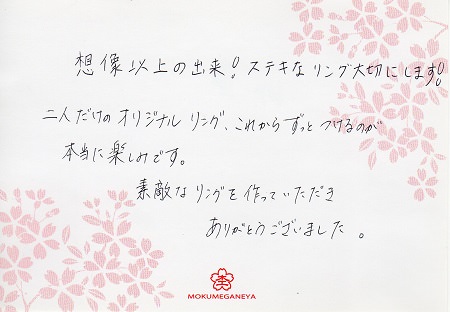 想像以上の出来!ステキなリング大切にします!
二人だけのオリジナルリング、これからずっとつけるのが
本当に楽しみです。
素敵なリングを作っていただき
ありがとうございました。
MOKUMEGANEYA